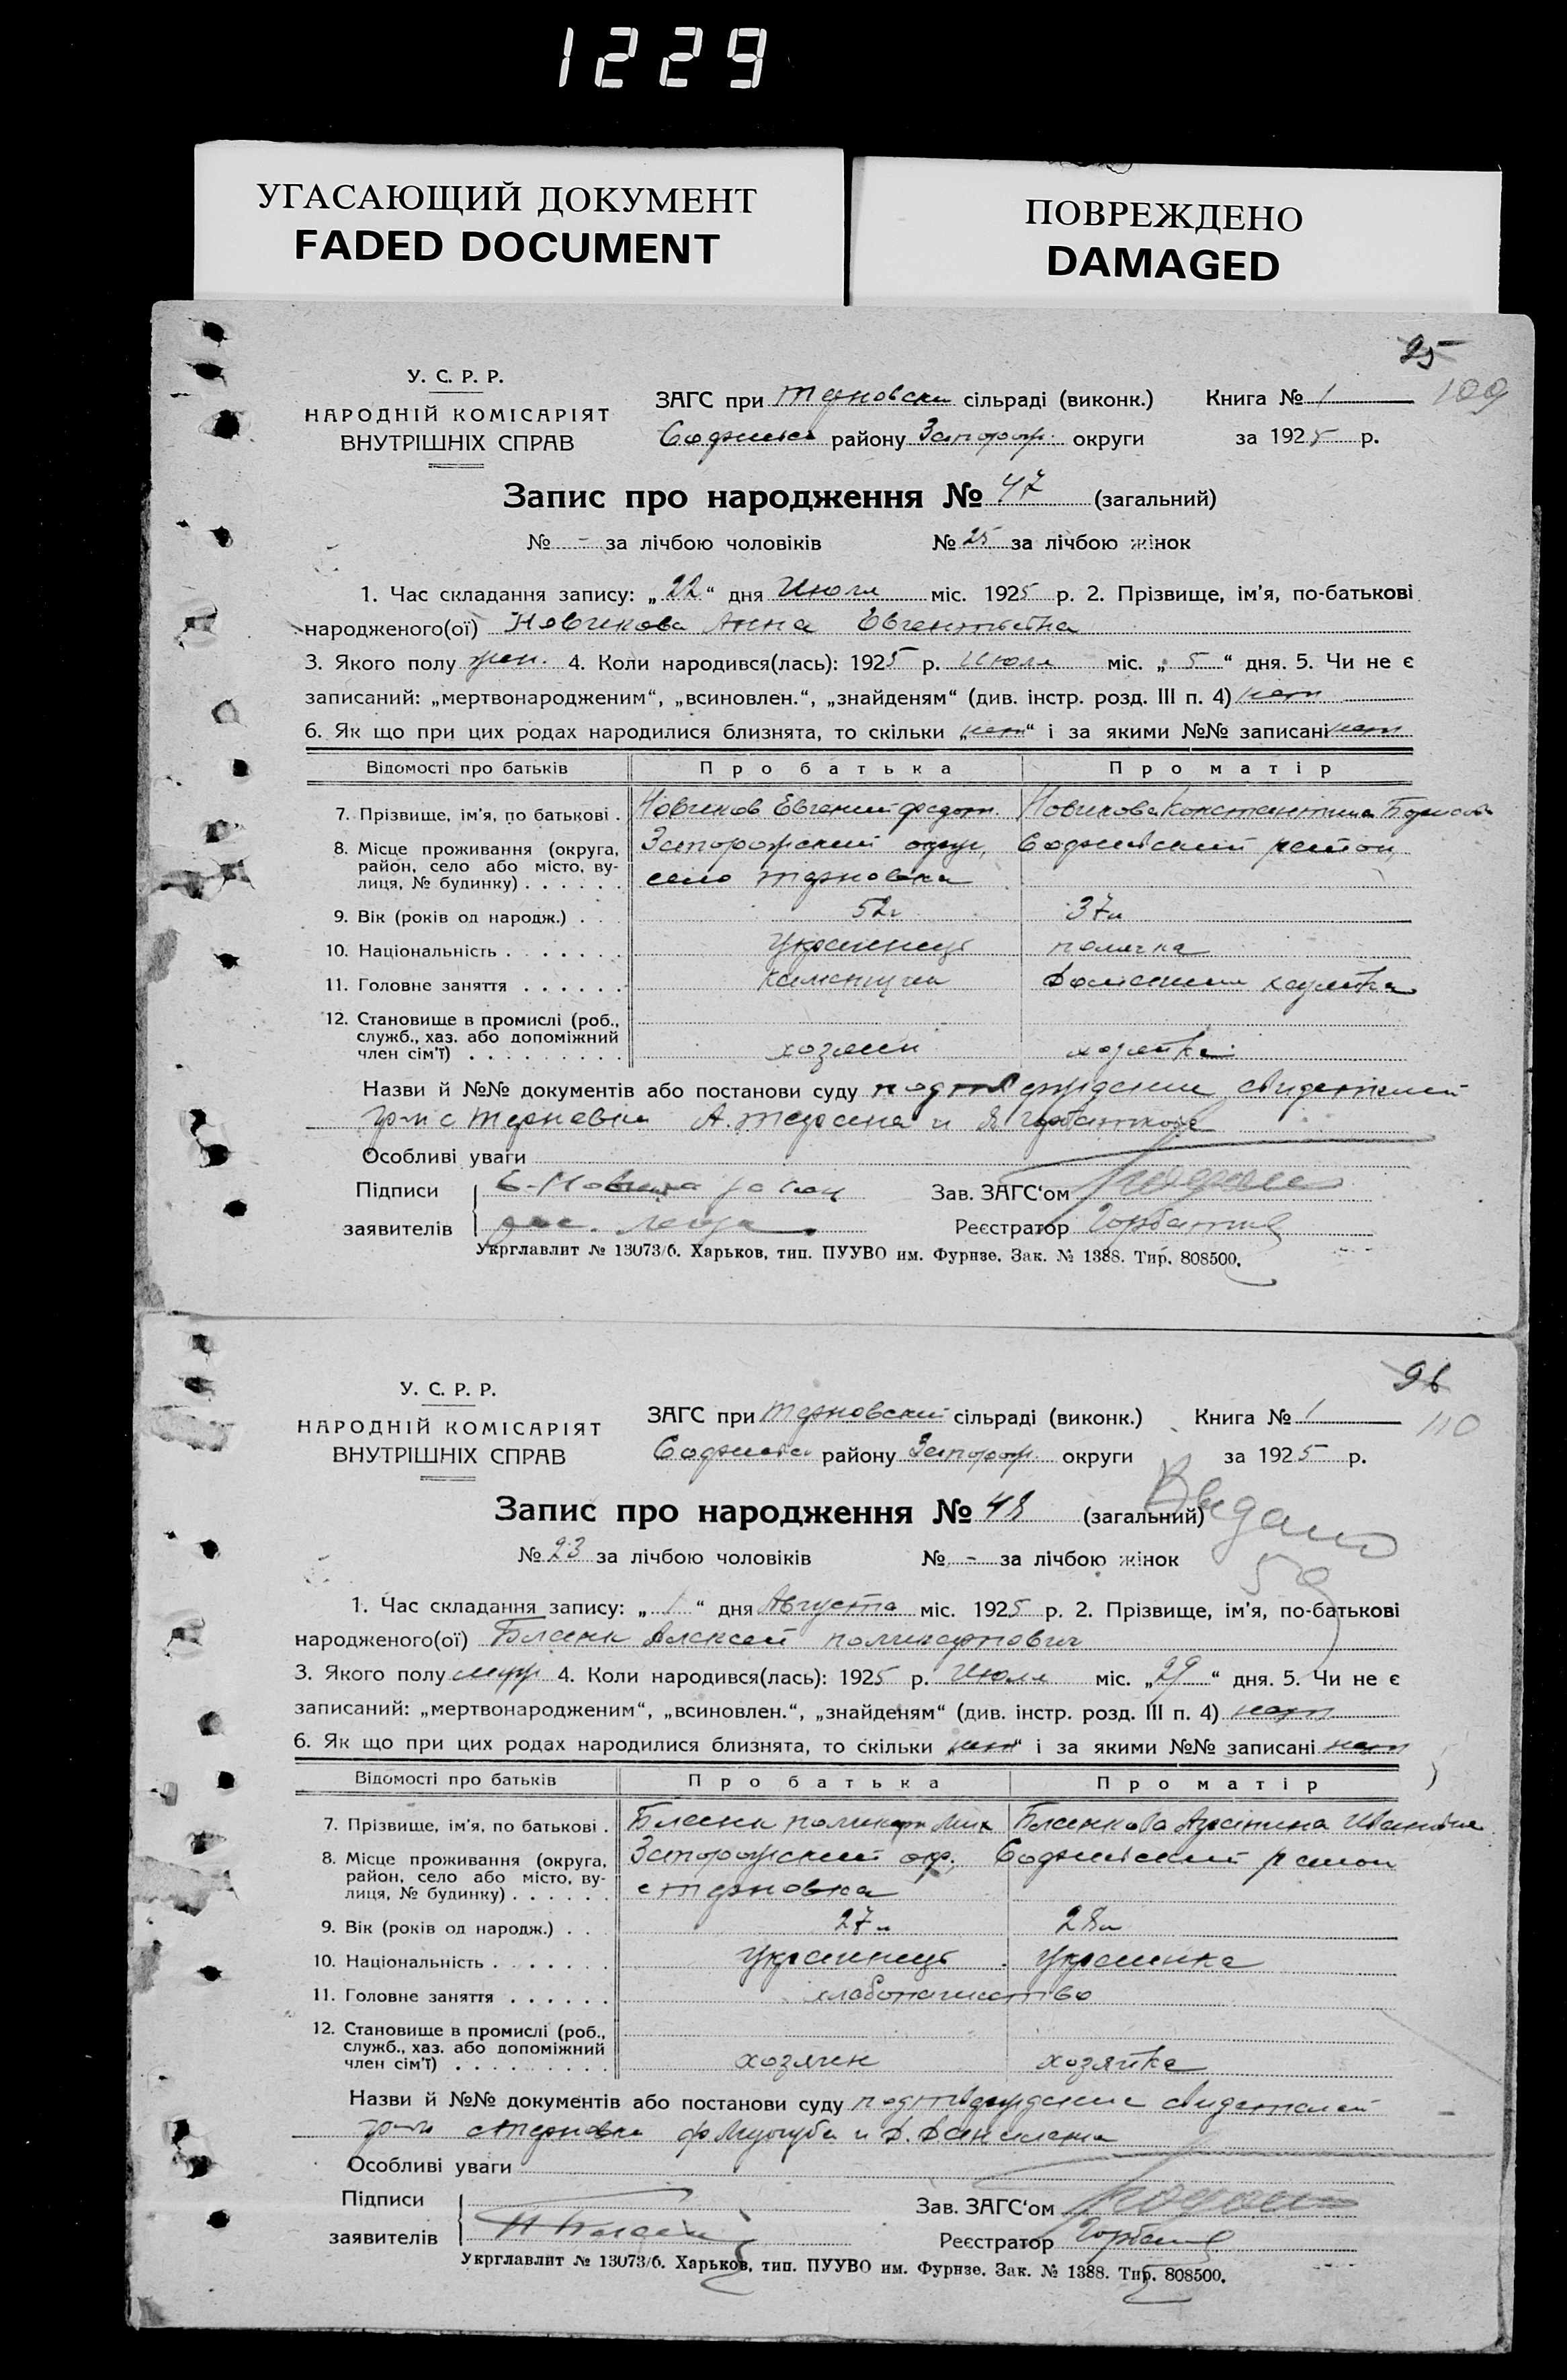 1229
УГАСАЮЩИЙ ДОКУМЕНТ
FADED DOCUMENT
ПОВРЕЖДЕНО
DAMAGED
25
109
У. С. Р. Р.
НАРОДНІЙ КОМІСАРІЯТ
ВНУТРІШНІХ СПРАВ
ЗАГС при Терновском сільраді (виконк.) Книга № 1
району Запорож. округи за 1925 р.
Запис про народження № 47 (загальний)
№ - за лічбою чоловіків № 25 за лічбою жінок
1. Час складання запису: „22“ дня Июля міс. 1925 р. 2. Прізвище, ім'я, по-батькові
народженого(ої) Новикова Анна Евгентьевна
3. Якого полу жен. 4. Коли народився(лась): 1925 р. Июля міс. „5“ дня. 5. Чи не є
записаний: „мертвонародженим“, „всиновлен.“, „знайденям“ (див. інстр. розд. III п. 4) нет
6. Як що при цих родах народилися близнята, то скільки „нет“ і за якими №№ записані нет
Відомості про батьків Про батька Про матір
7. Прізвище, ім'я, по батькові . Новиков Евгений Федот. Новикова Константина Борисов
8. Місце проживання (округа, Запорожский округ, район,
район, село або місто, ву- село Терновка
лиця, № будинку) . . . . . .
9. Вік (років од народж.) . . 52г 37л
10. Національність . . . . . . . Украинец полячка
11. Головне заняття . . . . . . каменщик домашняя хозяйка
12. Становище в промислі (роб.,
служб., хаз. або допоміжний
член сім'ї) . . . . . . . . . хозяин хозяйка
Назви й №№ документів або постанови суду подтверждение свидетелей
гр-н с Терновки А. и Я Горбатков
Особливі уваги
Підписи Зав. ЗАГС'ом
заявителів Реєстратор
Укрглавлит № 13073/б. Харьков, тип. ПУУВО им. Фурнзе. Зак. № 1388. Тир. 808500.
96
110
У. С. Р. Р.
НАРОДНІЙ КОМІСАРІЯТ
ВНУТРІШНІХ СПРАВ
ЗАГС при Терновский сільраді (виконк.) Книга № 1
району Запорож. округи за 1925 р.
Видано
Запис про народження № 48 (загальний)
№ 23 за лічбою чоловіків № - за лічбою жінок
59
1. Час складання запису: „1“ дня Августа міс. 1925 р. 2. Прізвище, ім'я, по-батькові
народженого(ої) Бланк Алексей поликарпович
3. Якого полу муж 4. Коли народився(лась): 1925 р. Июля міс. „29“ дня. 5. Чи не є
записаний: „мертвонародженим“, „всиновлен.“, „знайденям“ (див. інстр. розд. III п. 4) нет
6. Як що при цих родах народилися близнята, то скільки „нет“ і за якими №№ записані нет
Відомості про батьків Про батька Про матір
7. Прізвище, ім'я, по батькові . Бланк поликарп Мих Бланкова Ивановна
8. Місце проживання (округа, Запорожский окр., район
район, село або місто, ву- с Терновка
лиця, № будинку) . . . . . .
9. Вік (років од народж.) . . 27л 28л
10. Національність . . . . . . . Украинец Украинка
11. Головне заняття . . . . . . хлебопашество
12. Становище в промислі (роб.,
служб., хаз. або допоміжний
член сім'ї) . . . . . . . . . хозяин хозяйка
Назви й №№ документів або постанови суду подтверждение свидетелей
гр-н с Терновки
Особливі уваги
Підписи Зав. ЗАГС'ом
заявителів Реєстратор
Укрглавлит № 13073/б. Харьков, тип. ПУУВО им. Фурнзе. Зак. № 1388. Тир. 808500.